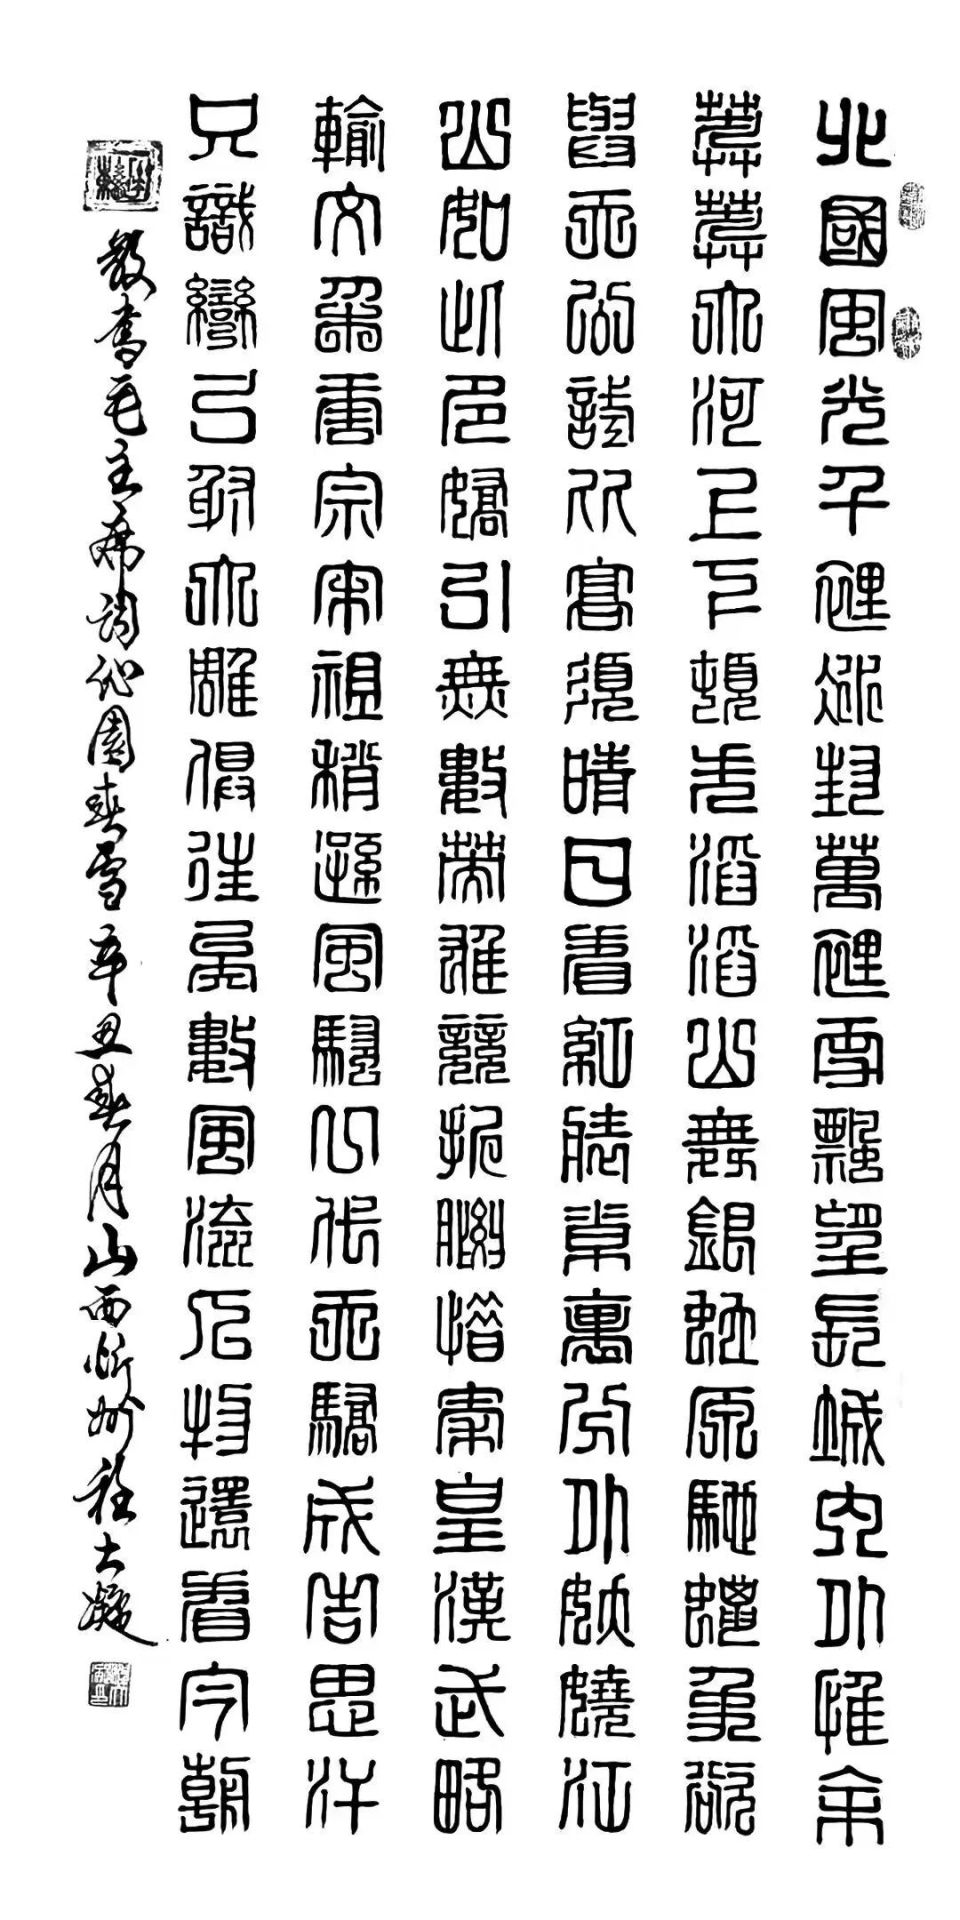 北國風光千里冰封萬里雪飄望長城內外惟余
莽莽大河上下頓失滔滔山舞銀蛇原馳蠟象欲
與天公試比高須晴日看紅裝素裹分外妖嬈江
山如此多嬌引無數英雄競折腰惜秦皇漢武略
輸文采唐宗宋祖稍遜風騷一代天驕成吉思汗
只識彎弓射大雕俱往矣數風流人物還看今朝
敬書毛主席詞沁園春雪辛丑春月山西忻州程